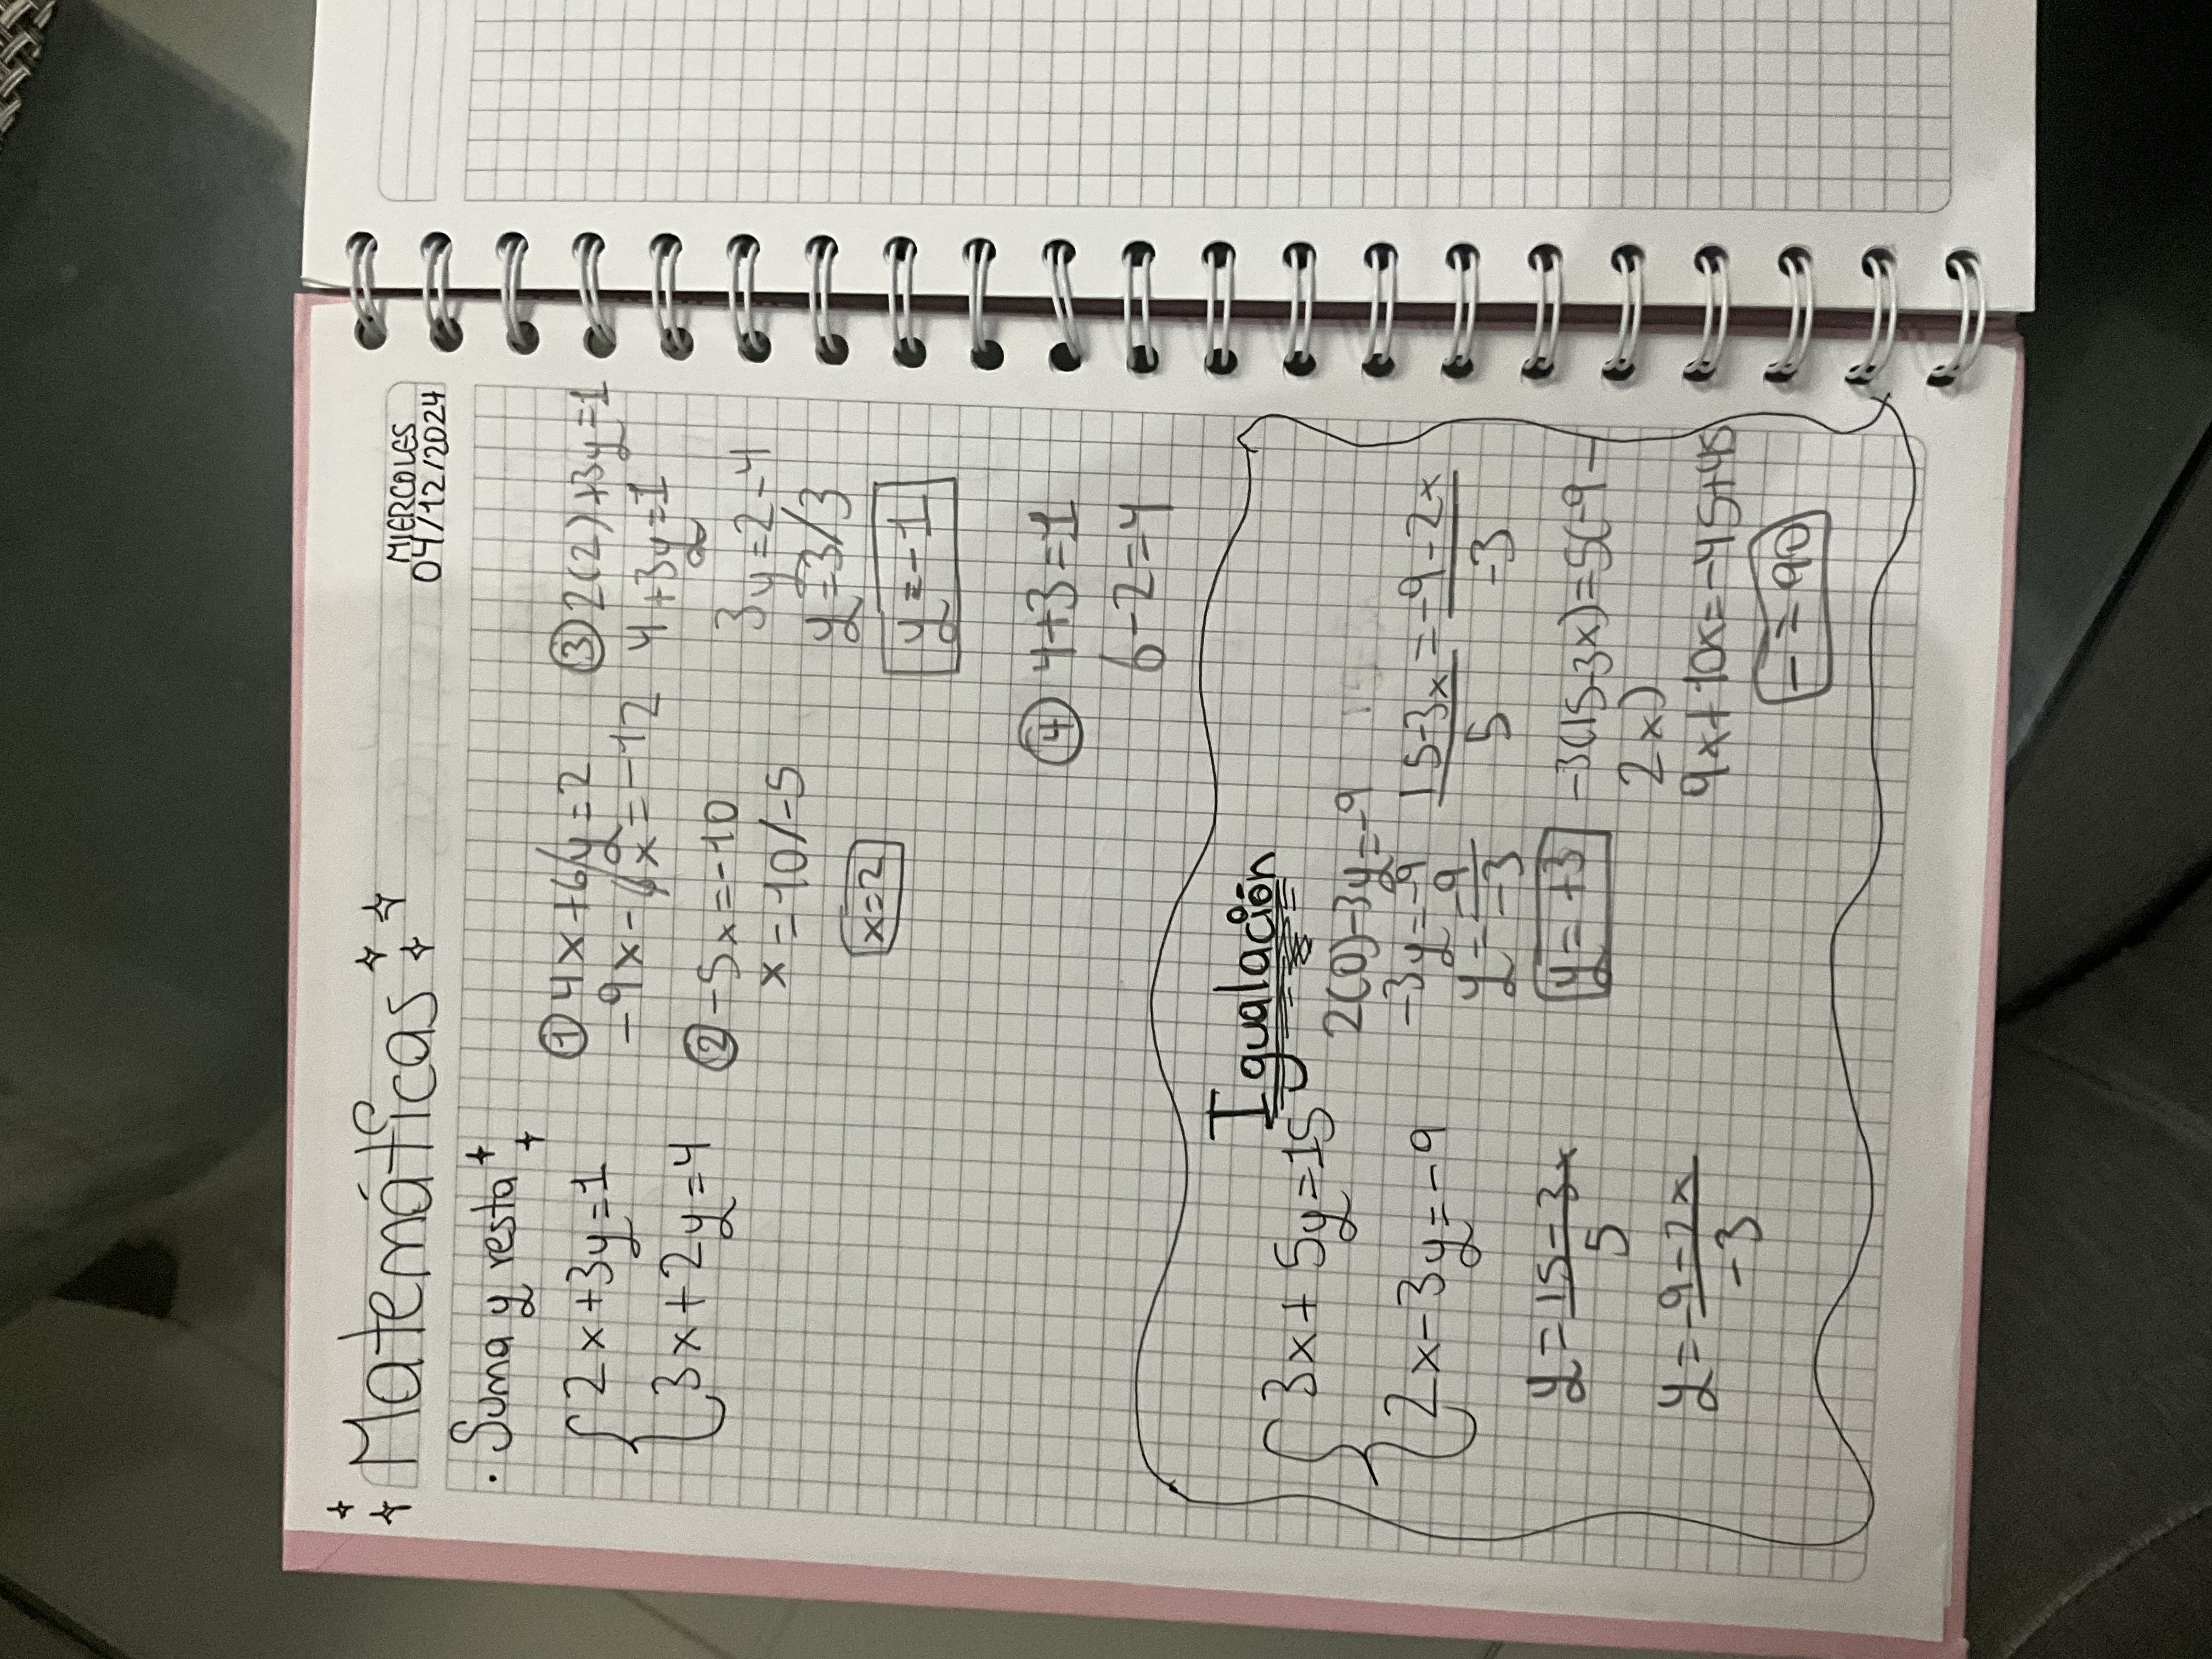 Matemáticas
MIERCOLES
04/12/2024
· Suma y resta
2x+3y=1
3x+2y=4
① 4x+6y=2
-9x-6x=-12
② -5x=-10
x=-10/-5
x=2
③ 2(2)+3y=1
4+3y=1
3y=2-4
y=-3/3
y=-1
④ 4+3=1
6-2=4
Igualación
3x+5y=15
2x-3y=-9
y=15-3x
5
y=-9-2x
-3
2(0)-3y=-9
-3y=-9
y=-9
-3
y=+3
15-3x=-9-2x
5 -3
-3(15-3x)=5(-9-
2x)
9x+10x=-45+45
-=90